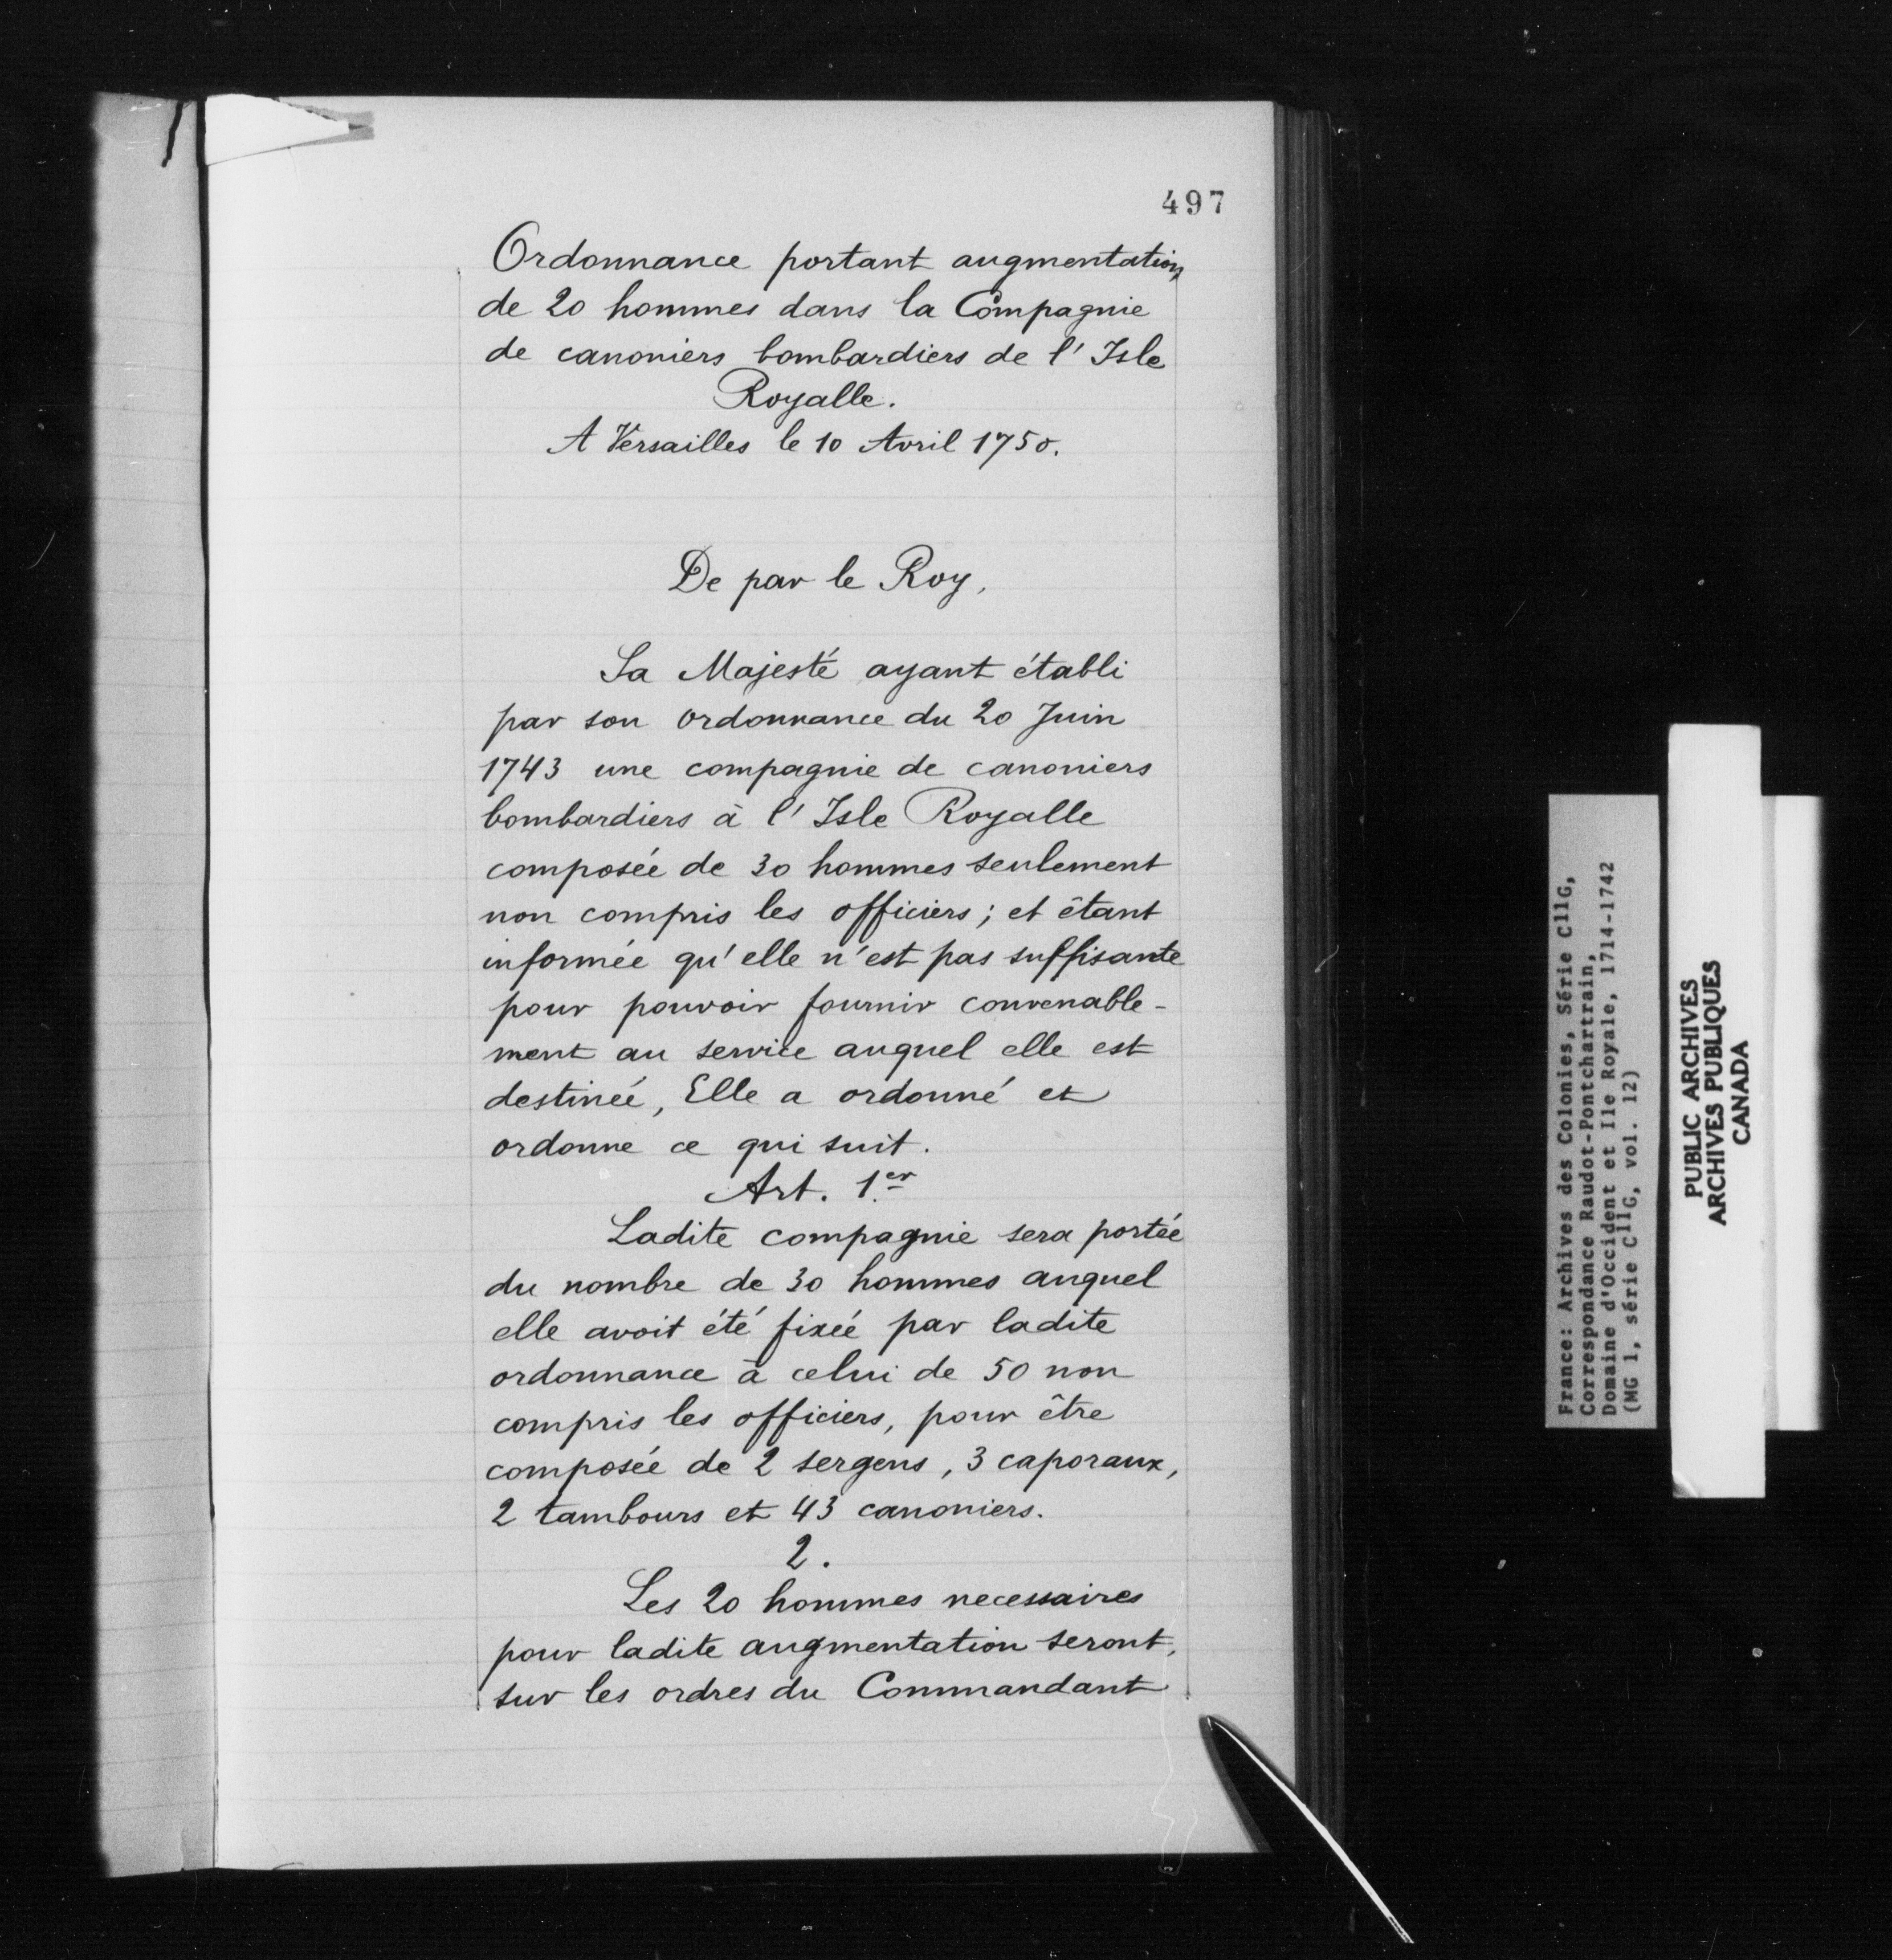 497
Ordonnance portant augmentation
de 20 hommes dans la Compagnie
de canoniers bombardiers de l' Isle
Royalle.
A Versailles le 10 Avril 1750.
De par le Roy,
Sa Majesté ayant établi
par son ordonnance du 20 Juin
1743 une compagnie de canoniers
bombardiers à l' Isle Royalle
composée de 30 hommes seulement
non compris les officiers ; et étant
informée qu'elle n'est pas suffisante
pour pouvoir fournir convenable-
ment au service auquel elle est
destinée, Elle a ordonné et
ordonne ce qui suit.
Art. 1.er
Ladite compagnie sera portée
du nombre de 30 hommes auquel
elle avoit été fixée par ladite
ordonnance à celui de 50 non
compris les officiers, pour être
composée de 2 sergens, 3 caporaux,
2 tambours et 43 canoniers.
2.
Les 20 hommes necessaires
pour ladite augmentation seront,
sur les ordres du Commandant
France: Archives des Colonies, Série C11G,
Correspondance Raudot-Pontchartrain,
Domaine d'Occident et Ile Royale, 1714-1742
(MG 1, série C11G, vol. 12)
PUBLIC ARCHIVES
ARCHIVES PUBLIQUES
CANADA